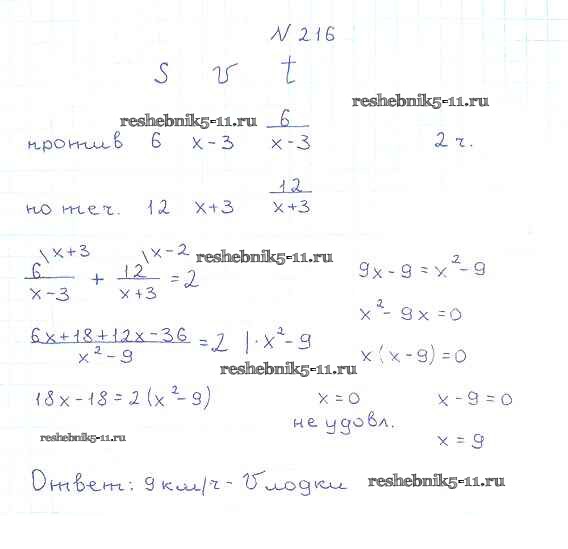 N 216
s v t
reshebnik5-11.ru
reshebnik5-11.ru
против 6 x-3 6/(x-3) 2 ч.
по теч. 12 x+3 12/(x+3)
\x+3 \x-2
6/(x-3) + 12/(x+3) = 2
reshebnik5-11.ru
(6x+18+12x-36)/(x²-9) = 2 |·x²-9
reshebnik5-11.ru
18x-18=2(x²-9)
reshebnik5-11.ru
9x-9=x²-9
x²-9x=0
x(x-9)=0
x=0 x-9=0
не удовл.
x=9
Ответ: 9 км/ч - V лодки
reshebnik5-11.ru